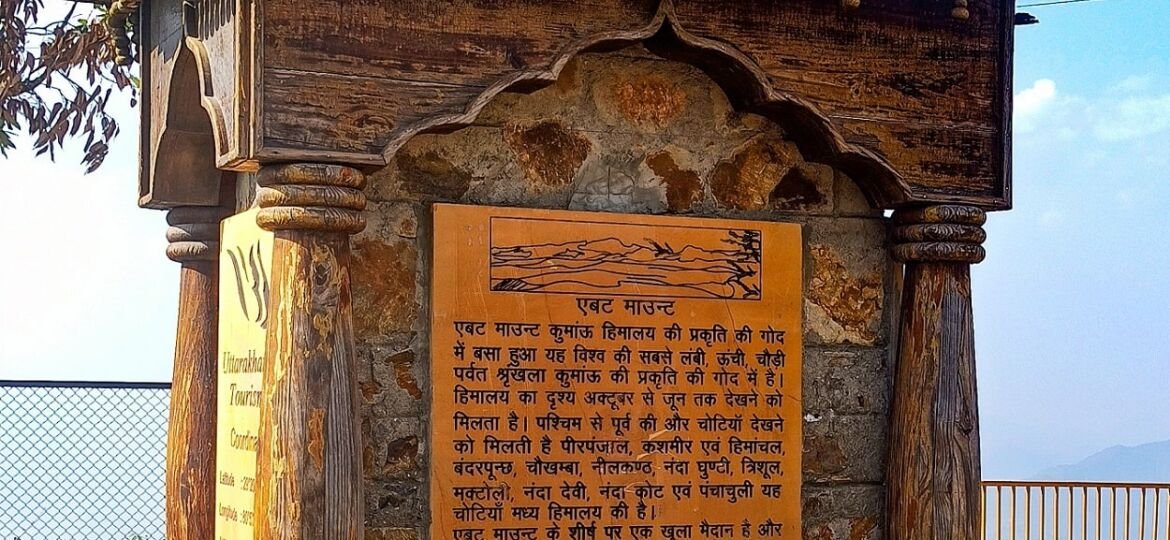 एबट माउन्ट
एबट माउन्ट कुमांऊ हिमालय की प्रकृति की गोद
में बसा हुआ यह विश्व की सबसे लंबी, ऊंची, चौड़ी
पर्वत श्रृंखला कुमांऊ की प्रकृति की गोद में है।
हिमालय का दृश्य अक्टूबर से जून तक देखने को
मिलता है। पश्चिम से पूर्व की और चोटियाँ देखने
को मिलती है पीरपंजाल, कश्मीर एवं हिमांचल,
बंदरपून्छ, चौखम्बा, नीलकण्ठ, नंदा घुण्टी, त्रिशूल,
मक्टोली, नंदा देवी, नंदा कोट एवं पंचाचुली यह
चोटियाँ मध्य हिमालय की है।
एबट माउन्ट के शीर्ष पर एक खुला मैदान है और
Latitude
Longitude